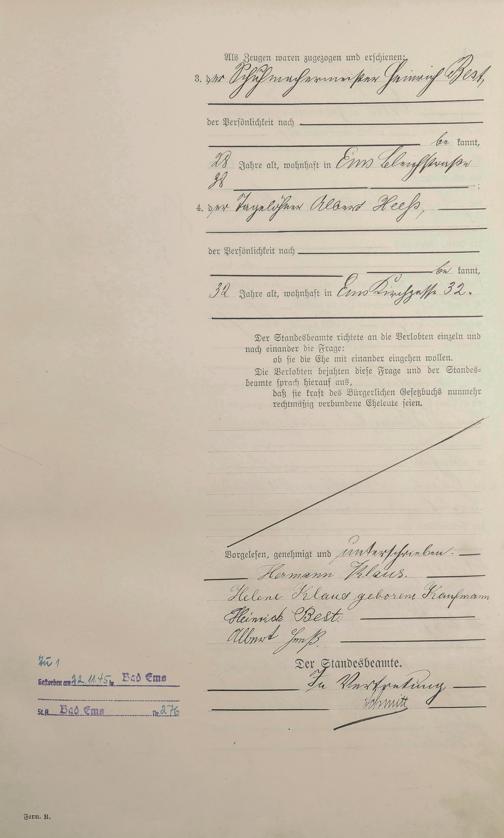 Als Zeugen waren zugezogen und erschienen:
3. der Schuhmachermeister Heinrich Best,
der Persönlichkeit nach
be kannt,
28 Jahre alt, wohnhaft in Ems Bleichstraße
28
4. der Tagelöhner Albert Heeß,
der Persönlichkeit nach
be kannt,
32 Jahre alt, wohnhaft in Ems Kirchgasse 32.
Der Standesbeamte richtete an die Verlobten einzeln und
nach einander die Frage:
ob sie die Ehe mit einander eingehen wollen.
Die Verlobten bejahten diese Frage und der Standes-
beamte sprach hierauf aus,
daß sie kraft des Bürgerlichen Gesetzbuchs nunmehr
rechtmäßig verbundene Eheleute seien.
Vorgelesen, genehmigt und unterschrieben.
Hermann Klaus.
Helene Klaus geborene Kaufmann
Heinrich Best.
Albert Heeß.
Der Standesbeamte.
In Vertretung
Schmitt
Zu 1
Gestorben am 22.11.45 in Bad Ems
St.A. Bad Ems Nr. 276
Form. B.